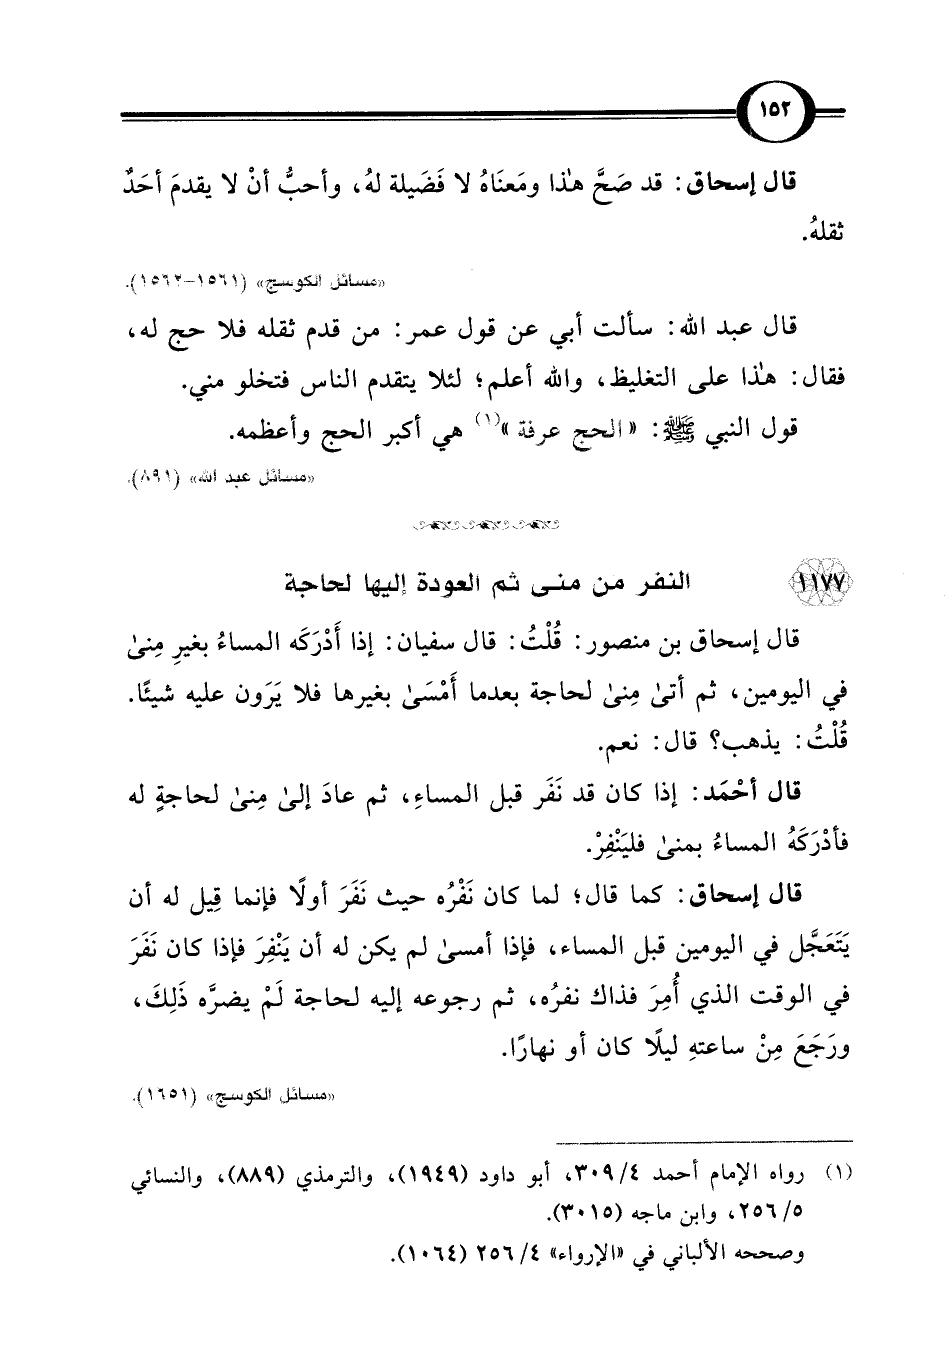 ١٥٢
قال إسحاق: قد صَحَّ هٰذا ومَعنَاهُ لا فَضَيلة لهُ، وأحبُّ أنْ لا يقدمَ أحَدٌ
ثقلهُ.
«مسائل الكوسج» (١٥٦١-١٥٦٢).
قال عبد الله: سألت أبي عن قول عمر: من قدم ثقله فلا حج له،
فقال: هٰذا على التغليظ، والله أعلم؛ لئلا يتقدم الناس فتخلو مني.
قول النبي ﷺ: «الحج عرفة»(١) هي أكبر الحج وأعظمه.
«مسائل عبد الله» (٨٩١).
١١٧٧ النفر من منى ثم العودة إليها لحاجة
قال إسحاق بن منصور: قُلْتُ: قال سفيان: إذا أَدْرَكَه المساءُ بغيرِ مِنىٰ
في اليومين، ثم أتىٰ مِنىٰ لحاجة بعدما أَمْسَىٰ بغيرها فلا يَرَون عليه شيئًا.
قُلْتُ: يذهب؟ قال: نعم.
قال أحْمَد: إذا كان قد نَفَر قبل المساءِ، ثم عادَ إلىٰ مِنىٰ لحاجةٍ له
فأدْرَكَهُ المساءُ بمنىٰ فليَنْفِرْ.
قال إسحاق: كما قال؛ لما كان نَفْرُه حيث نَفَرَ أولًا فإنما قِيل له أن
يَتَعَجَّل في اليومين قبل المساء، فإذا أمسىٰ لم يكن له أن يَنْفِرَ فإذا كان نَفَرَ
في الوقت الذي أُمِرَ فذاك نفرُه، ثم رجوعه إليه لحاجة لَمْ يضرَّه ذَلِكَ،
ورَجَعَ مِنْ ساعتهِ ليلًا كان أو نهارًا.
«مسائل الكوسج» (١٦٥١).
(١) رواه الإمام أحمد ٣٠٩/٤، أبو داود (١٩٤٩)، والترمذي (٨٨٩)، والنسائي
٢٥٦/٥، وابن ماجه (٣٠١٥).
وصححه الألباني في «الإرواء» ٢٥٦/٤ (١٠٦٤).